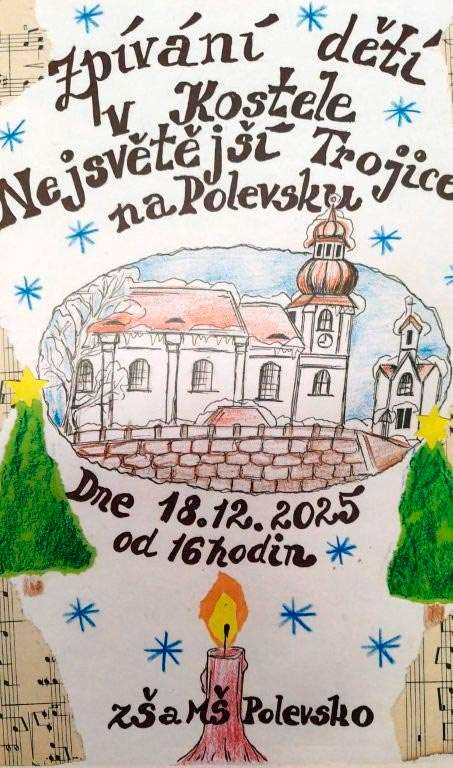 Zpívání dětí
v Kostele
Nejsvětější Trojice
na Polevsku
Dne 18.12.2025
od 16 hodin
ZŠ a MŠ Polevsko